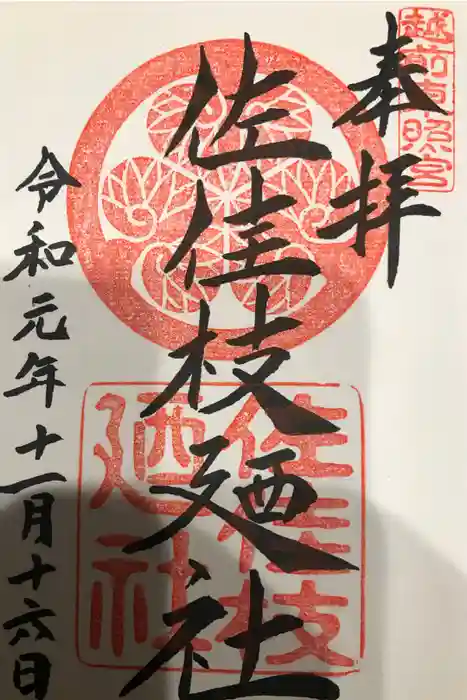 越前東照宮
奉拝
佐佳枝廼社
佐佳枝廼社
令和元年十一月十六日